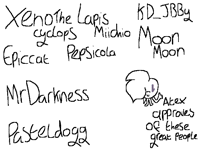 XenoThe Lapis
cyclops Miichio
KD_JBBy
Moon
Moon
Epiccat Pepsicola
MrDarkness
Pasteldogg
Alex
approves
of these
great people